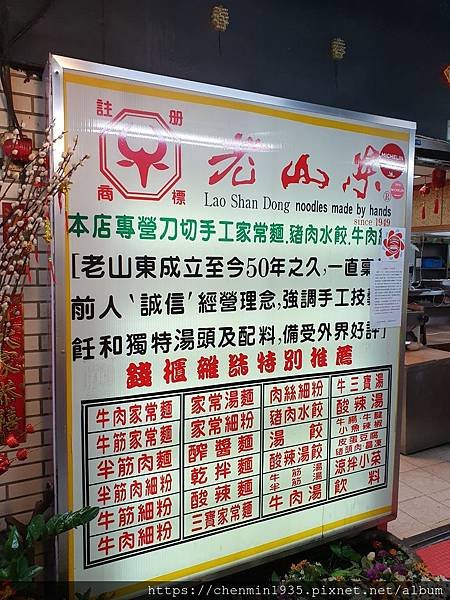 註 册
商 標
老山东
MICHELIN
®
Lao Shan Dong noodles made by hands
since 1949
本店專營刀切手工家常麵.豬肉水餃.牛肉
[老山東成立至今50年之久,一直
前人‵誠信′經營理念,強調手工技
飪和獨特湯頭及配料,備受外界好評
錢櫃雜誌特別推薦
牛肉家常麵
牛筋家常麵
半筋肉麵
半筋肉細粉
牛筋細粉
牛肉細粉
家常湯麵
家常細粉
醡醬麵
乾拌麵
酸辣麵
三寶家常麵
肉絲細粉
豬肉水餃
湯 餃
酸辣湯餃
牛筋湯
半筋湯
牛肉湯
牛三寶湯
酸辣湯
牛腩、牛腱
小魚辣椒
皮蛋豆腐
豬頭肉、滷凍
涼拌小菜
飲 料
https://chenmin1935.pixnet.net/album